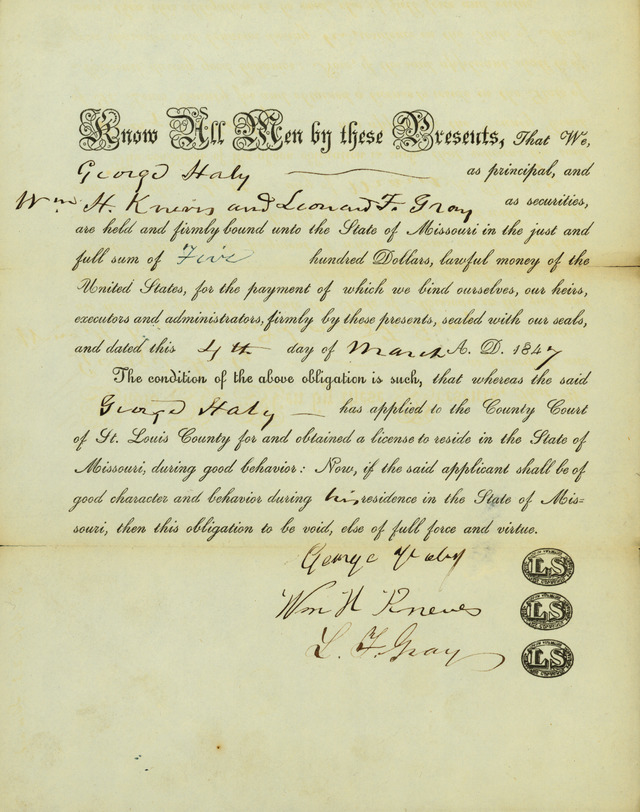 Know All Men by these Presents, That We,
George Haby as principal, and
Wm H. Knevis and Leonard F. Gray as securities,
are held and firmly bound unto the State of Missouri in the just and
full sum of Five hundred Dollars, lawful money of the
United States, for the payment of which we bind ourselves, our heirs,
executors and administrators, firmly by these presents, sealed with our seals,
and dated this 4th day of March A. D. 1847
The condition of the above obligation is such, that whereas the said
George Haby has applied to the County Court
of St. Louis County for and obtained a license to reside in the State of
Missouri, during good behavior: Now, if the said applicant shall be of
good character and behavior during his residence in the State of Mis=
souri, then this obligation to be void, else of full force and virtue.
George Haby LS
Wm H Kneves LS
L. F. Gray LS